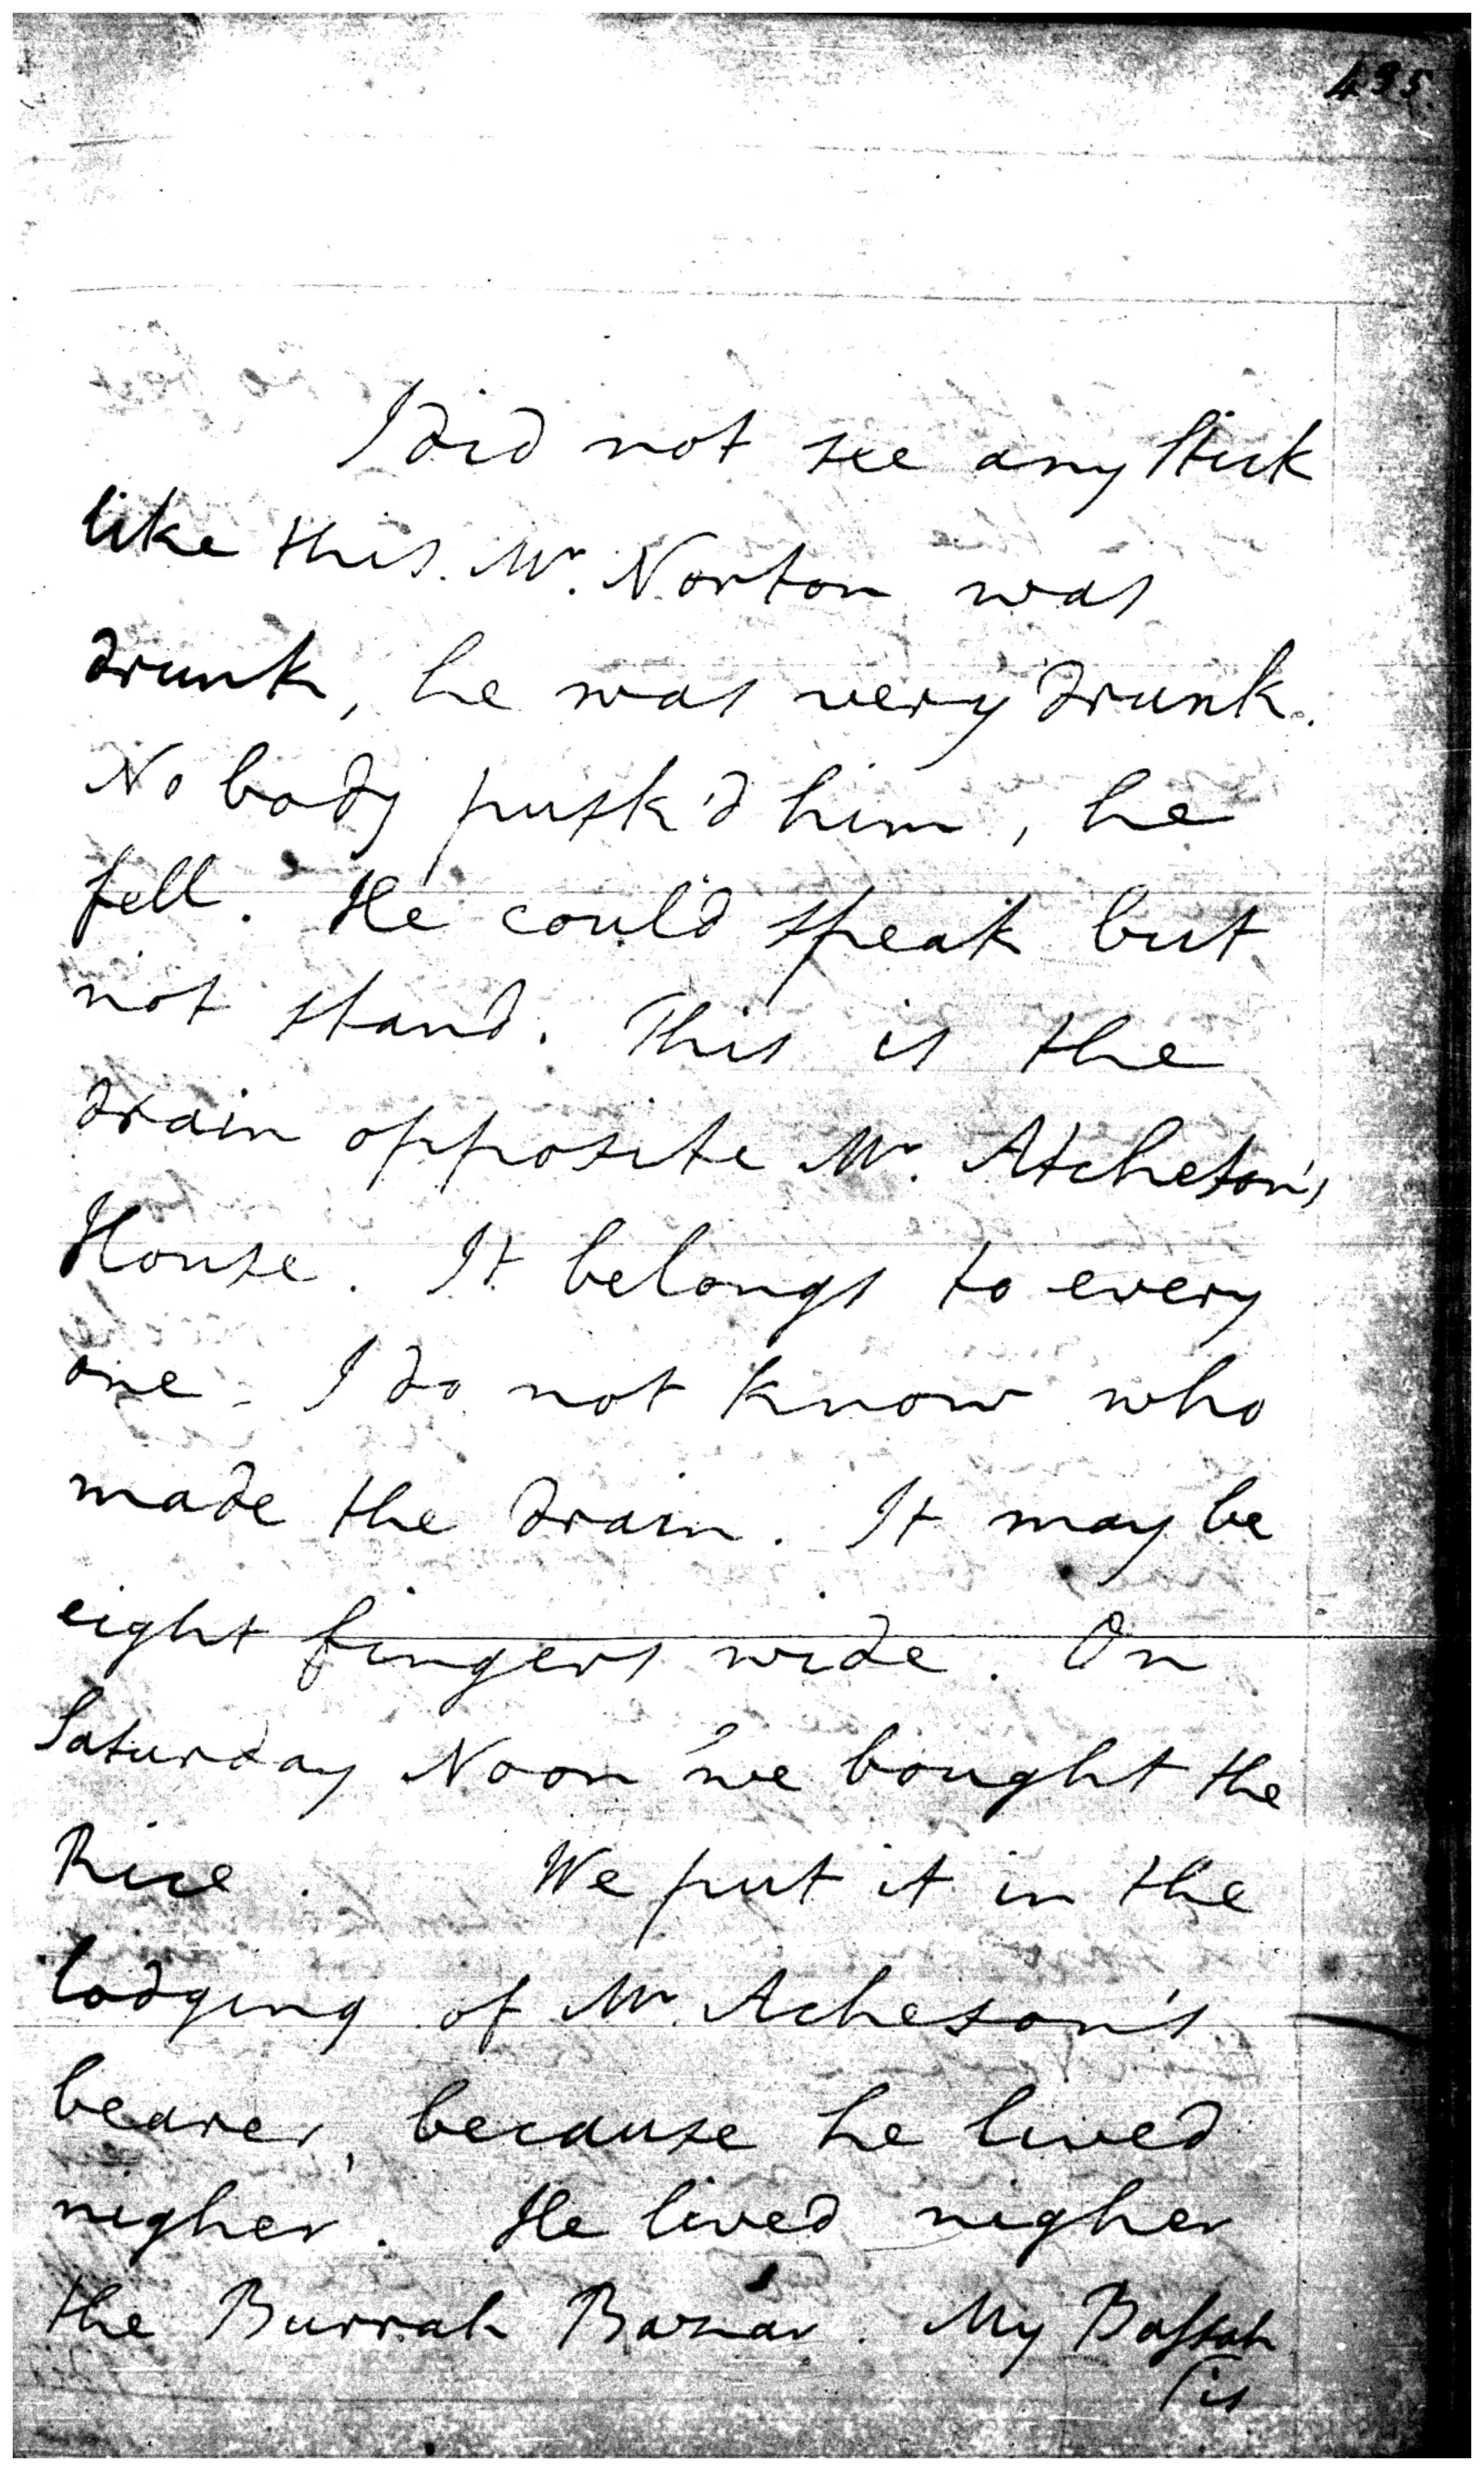 435
I did not see any Stick
like this. Mr. Norton was
drunk, he was very drunk.
No body push'd him, he
fell. He could speak but
not stand. This is the
drain opposite Mr. Atcheson's
House. It belongs to every
one - I do not know who
made the drain. It may be
eight fingers wide. On
Saturday Noon we bought the
Rice. We put it in the
lodging of Mr. Acheson's
bearer, because he lived
nigher. He lived nigher
the Burrah Bazar. My Bassah
is